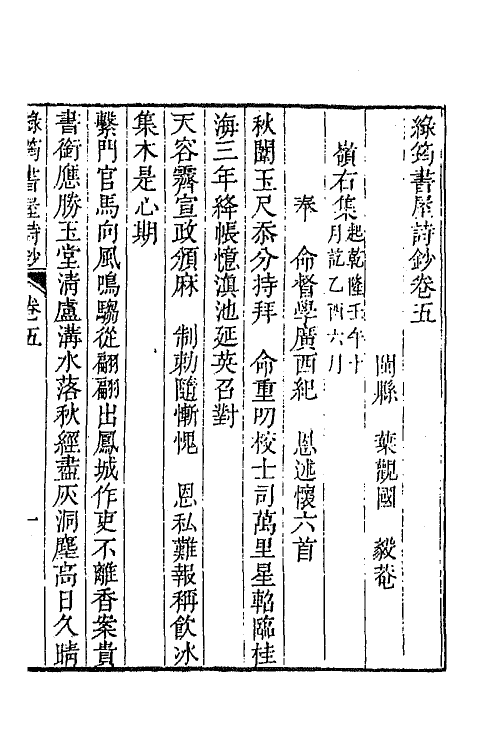 綠筠書屋詩鈔卷五
閩縣　葉觀國　毅菴
嶺右集起乾隆壬午十
月訖乙酉六月
奉　命督學廣西紀　恩述懷六首
秋闈玉尺忝分持拜　命重叨校士司萬里星軺臨桂
海三年絳帳憶滇池延英召對
天容霽宣政頒麻　制勅隨慚愧　恩私難報稱飲冰
集木是心期
繫門官馬向風鳴騶從翩翩出鳳城作吏不離香案貴
書銜應勝玉堂淸盧溝水落秋經盡灰洞塵高日久晴
綠筠書屋詩鈔　卷五　一